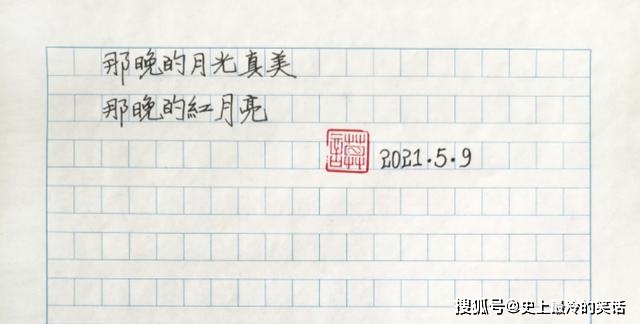 那晚的月光真美
那晚的紅月亮
2021.5.9
搜狐号@史上最冷的笑话